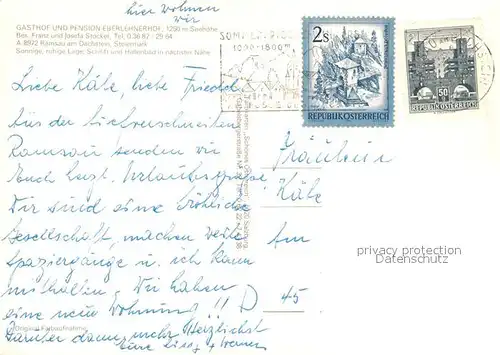 hier wohnen
wir
GASTHOF UND PENSION EBERLEHNERHOF, 1200 m Seehöhe
Bes. Franz und Josefa Stocker, Tel. 0 36 87 - 29 64
A 8972 Ramsau am Dachstein, Steiermark
Sonnige, ruhige Lage, Schilift und Hallenbad in nächster Nähe
2s
REPUBLIK ÖSTERREICH
50
REPUBLIK ÖSTERREICH
Liebe Käte, liebe Friedel
Aus der tiefverschneiten
Ramsau senden wir
Euch herzl. Urlaubsgrüße
Wir sind eine fröhliche
Gesellschaft, machen viele
Spaziergänge u. ich kann
mithalten. Wir haben
eine neue Wohnung!!
Darüber dann mehr. Herzlichst
Eure
Werner
Fräulein
Käte
Am
D 45
privacy protection
Datenschutz
Original Farbaufnahme